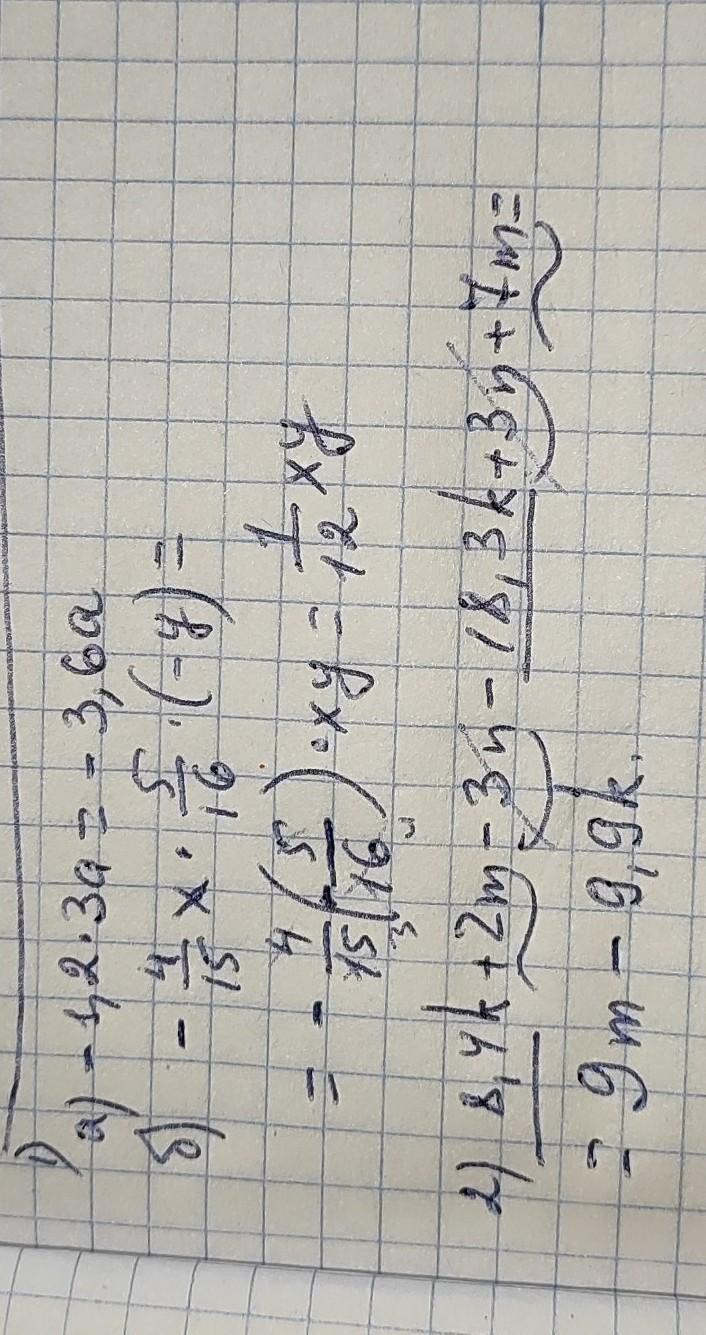 1)
а) -1,2·3a = -3,6a
б) -4/15 x · 5/16 · (-y) =
= -4/15 (-5/16) · xy = 1/12 xy
2) 8,4k + 2m - 3n - 18,3k + 3n + 7m =
= 9m - 9,9k.